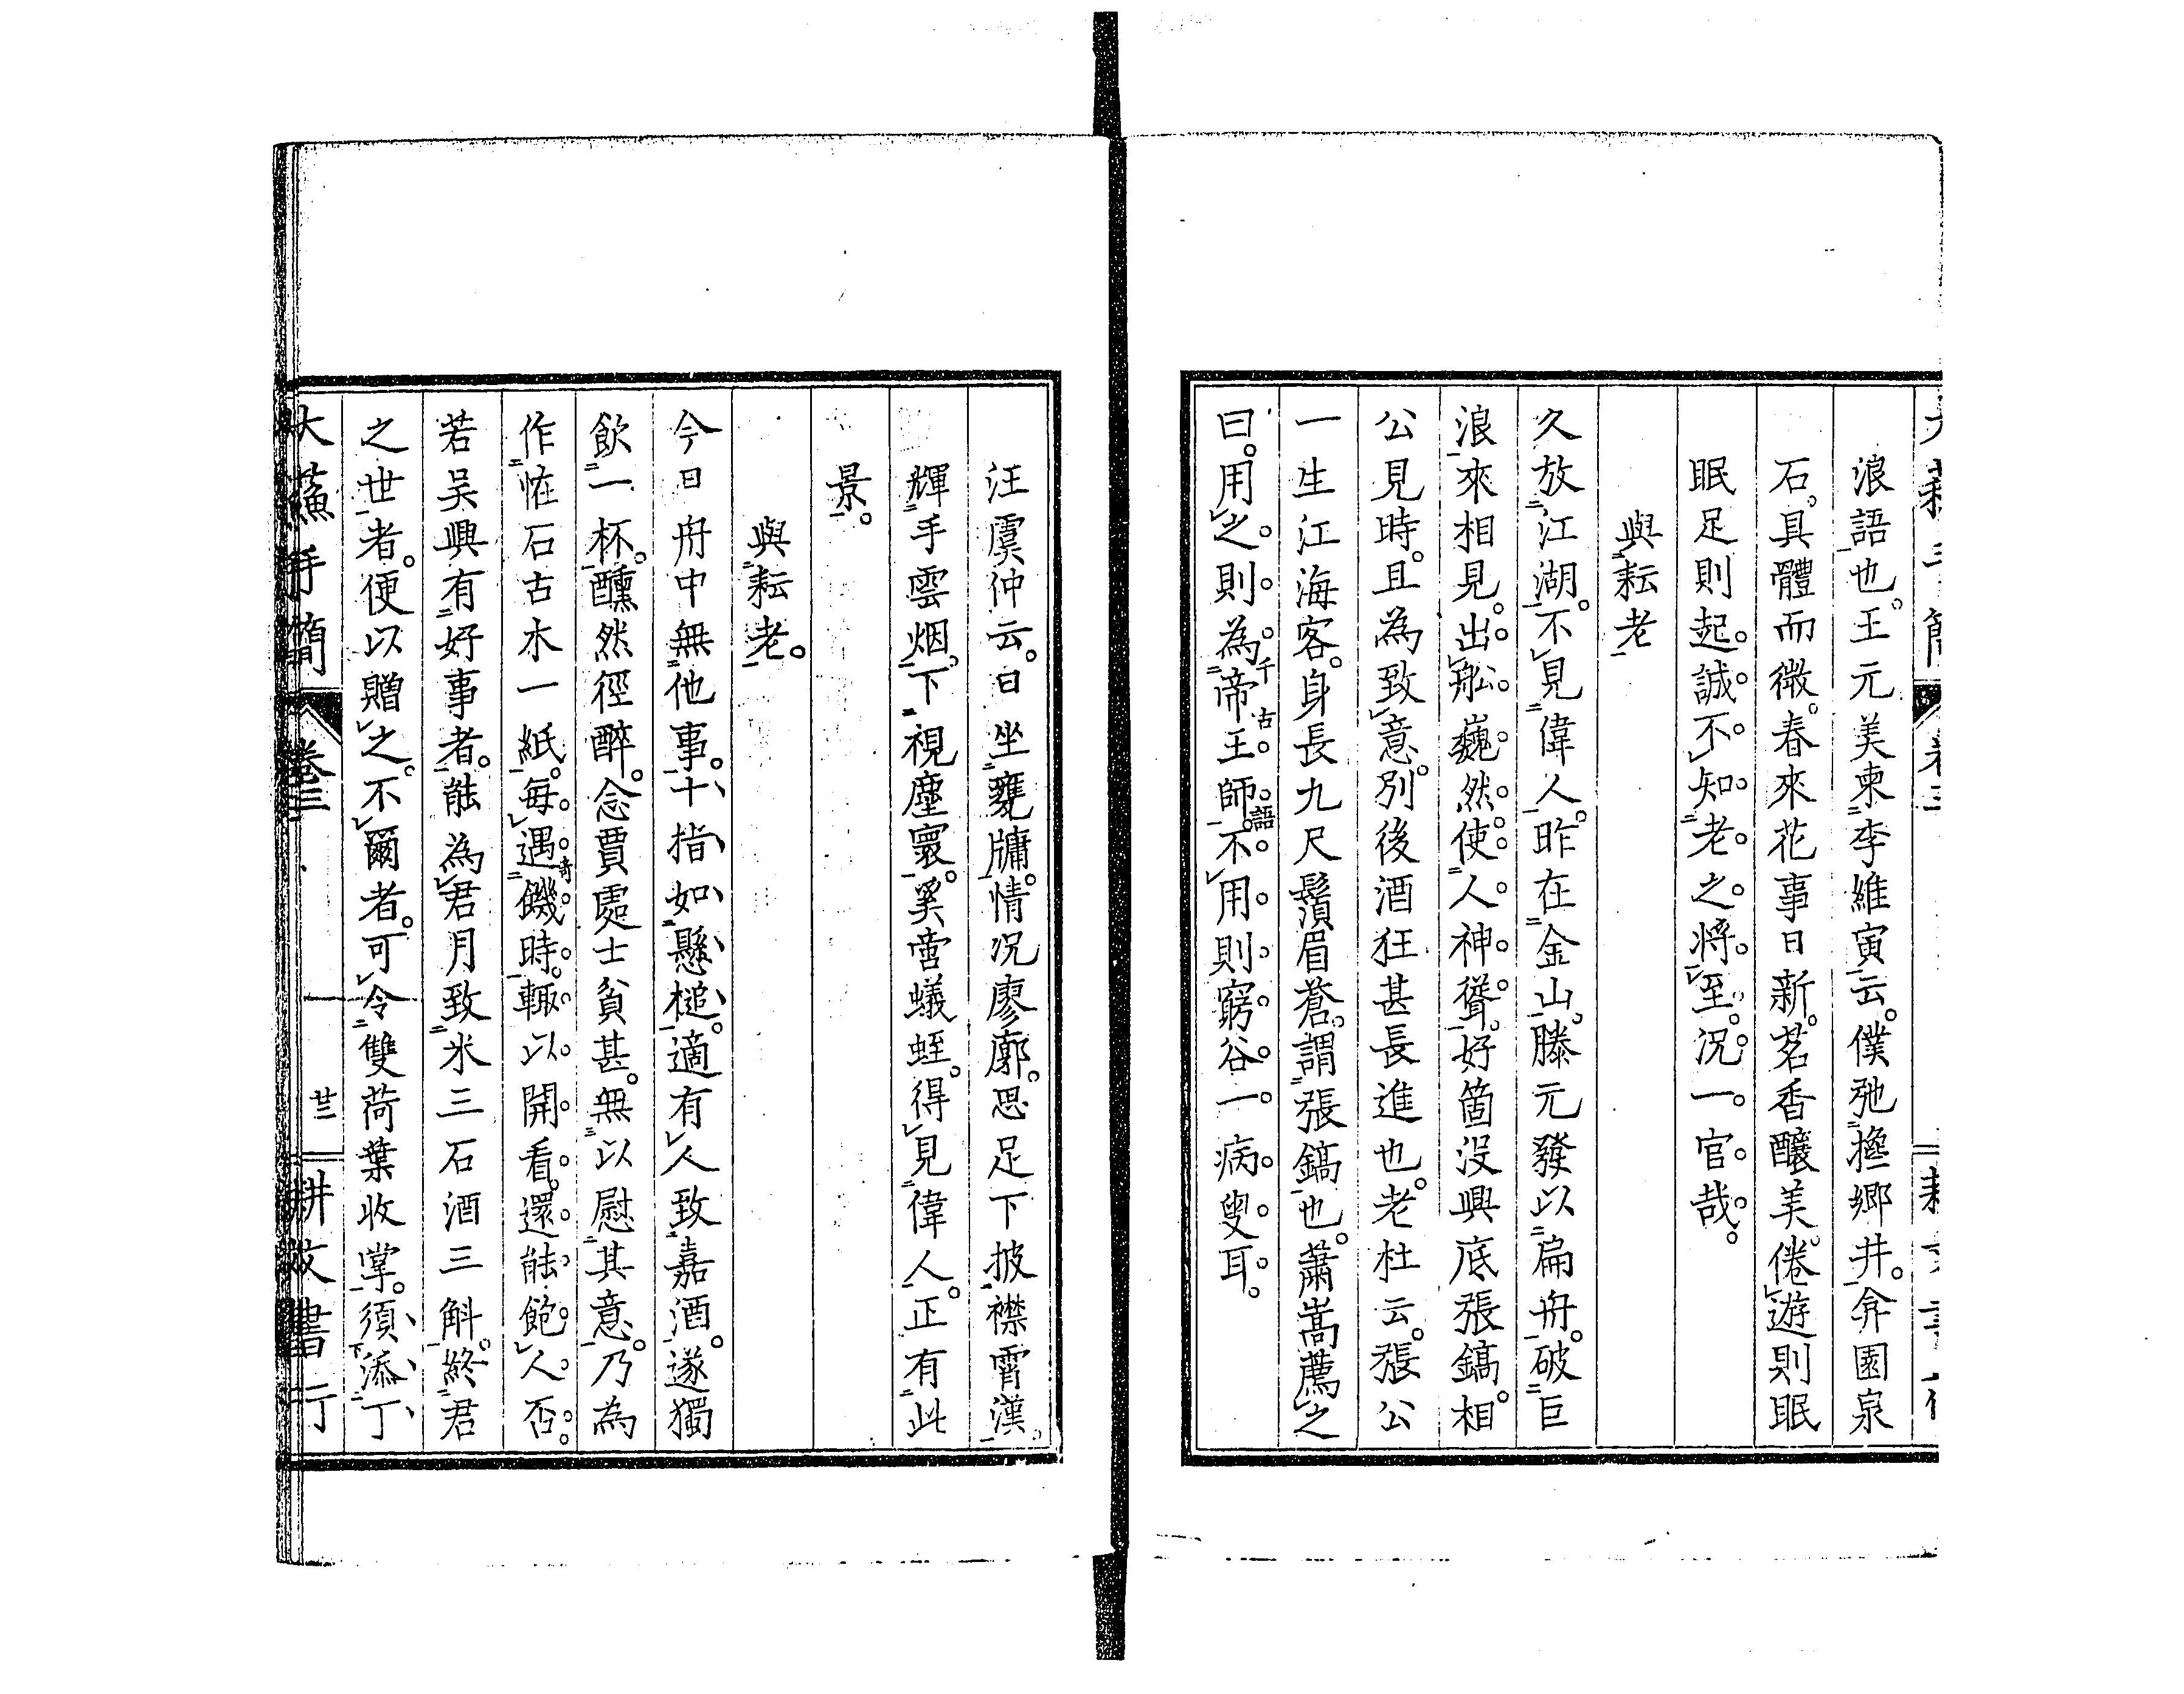 浪語也。王元美柬李維寅云。僕弛擔鄉井。弇園泉
石。具體而微。春來花事日新。茗香釀美。倦遊則眠
眠足則起。誠不知老之將至。況一官哉。
與耘老
久放江湖。不見偉人。昨在金山。滕元發以扁舟。破巨
浪來相見。出舩巍然。使人神聳。好箇沒興底張鎬。相
公見時。且為致意。別後酒狂甚長進也。老杜云。張公
一生江海客。身長九尺鬚眉蒼。謂張鎬也。蕭嵩薦之
曰。用之則為帝王師。不用則窮谷一病叟耳。
千古語
汪虞仲云。日坐甕牖。情況廖廓。思足下披襟霄漢。
輝手雲烟。下視塵寰。奚啻蟻蛭。得見偉人。正有此
景。
與耘老。
今日舟中無他事。十指如懸槌。適有人致嘉酒。遂獨
飲一杯。醺然徑醉。念賈處士貧甚。無以慰其意。乃為
作恠石古木一紙。每遇饑時。輒以開看。還能飽人否。
奇
若吳興有好事者。能為君月致米三石酒三斛。終君
之世者。便以贈之。不爾者。可令雙荷葉收掌。須添丁
大蘇手簡 卷三 廿三 耕文書行